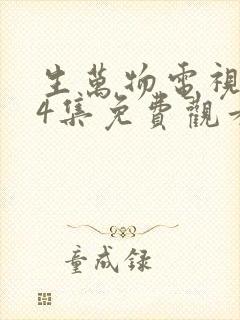 生萬物電視
4集免費觀看
童成録